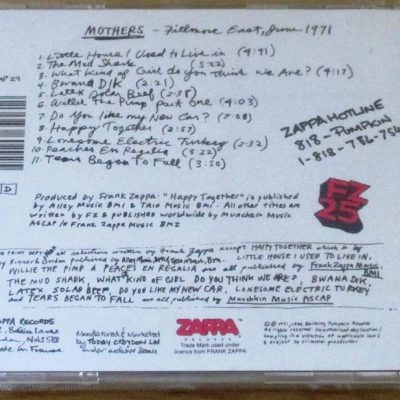 MOTHERS - Fillmore East, June 1971
1. Little House I Used to Live in (4:41)
2. The Mud Shark (5:22)
3. What Kind of Girl do you Think We Are? (4:17)
4. Bwana DIK (2:21)
5. Latex Solar Beef (2:38)
6. Willie The Pimp Part One (4:03)
7. Do You like my New Car? (7:08)
8. Happy Together (2:57)
9. Lonesome Electric Turkey (2:32)
10. Peaches En Regalia (3:22)
11. Tears Began To Fall (3:50)
ZAPPA HOTLINE
818-PUMPKIN
1-818-786-754
Produced by Frank Zappa: "Happy Together" is published
by Alley Music BMI & Trio Music BMI. All other titles are
written by FZ & published worldwide by Munchkin Music
ASCAP/o Frank Zappa Music BMI
FZ
25
all selections written by Frank Zappa except HAPPY TOGETHER which is by
LITTLE HOUSE I USED TO LIVE IN,
WILLIE THE PIMP & PEACES EN REGALIA are all published by Frank Zappa Music BMI
THE MUD SHARK, WHAT KIND OF GIRL DO YOU THINK WE ARE?, BWANA DIK,
LATEX SOLAR BEEF, DO YOU LIKE MY NEW CAR, LONESOME ELECTRIC TURKEY
and TEARS BEGAN TO FALL are all published by Munchkin Music ASCAP
ZAPPA RECORDS
Made in France
Manufactured & Marketed
by TODAY CROYDON Ltd
under exclusive licence
ZAPPA
RECORDS
Trade Mark used under
licence from FRANK ZAPPA